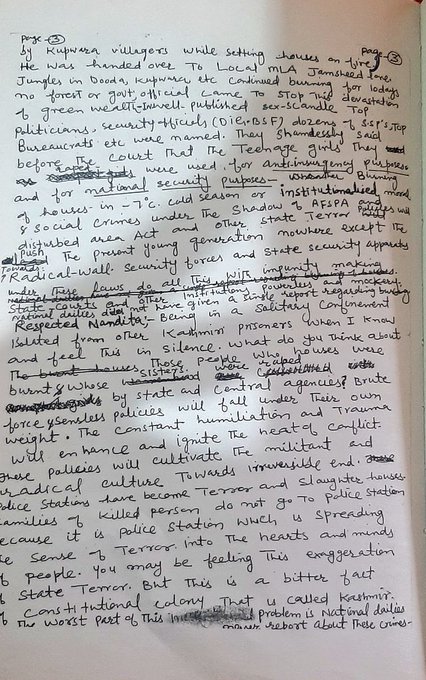 Page - 3
Page - 3
by Kupwara villagers while setting houses on fire,
He was handed over To Local MLA Jamsheed Lone.
Jungles in Dooda, Kupwara etc continued burning for 10days
no forest or govt; official came to stop this devastation
of green wealth. Inwell-published sex-scandle Top
Politicians, security-officials (DiG-BSF) dozens of S.S.P's, Top
Bureaucrats etc were named. They Shamlessly said
before the court that the Teenage girls they
were used for antiinsurgency purposes
and for national security purposes - Burning
of houses in -7°c. cold season or institutionalised moral
& Social Crimes under the Shadow of AFSPA and
disturbed area Act and other State Terror Policies will
Push The present young generation nowhere except the
Towards Radical-wall. Security forces and state security apparatus
under These laws do all This with impunity making
State courts and other Institutions Powerless and mockery.
national dailies did not have given a single report regarding burning
Respected Nandita; - Being in a Solitary Confinement
Isolated from other Kashmiri prisoners when I know
and feel This in Silence. What do you Think about
These people who houses were
burnt & whose sisters were raped
by state and central agencies? Brute
force & sensless policies will fall under Their own
weight. The constant humiliation and Trauma
will enhance and ignite the heat of conflict.
These policies will cultivate the militant and
radical culture Towards irreversible end.
Police Stations have become Terror and slaughter houses.
families of killed person do not go to Police Station
because it is Police Station which is spreading
the Sense of Terror. Into the hearts and minds
of people. You may be feeling this exaggeration
of State Terror. But This is a bitter fact
of Constitutional colony That is called Kashmir.
The worst part of This problem is National dailies
never report about These crimes-